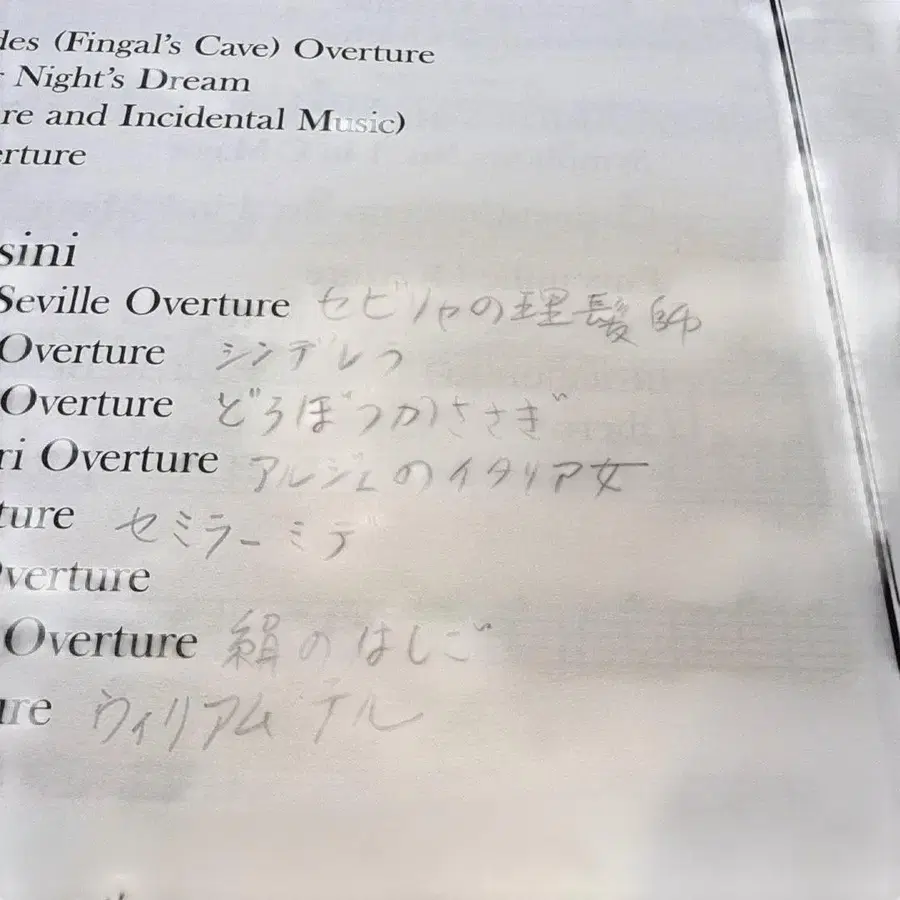 des (Fingal's Cave) Overture
Night's Dream
re and Incidental Music)
erture
sini
Seville Overture セビリャの理髪師
Overture シンデレラ
Overture どろぼうかささぎ
ri Overture アルジェのイタリア女
ture セミラーミデ
verture
Overture 絹のはしご
ure ウィリアム テル